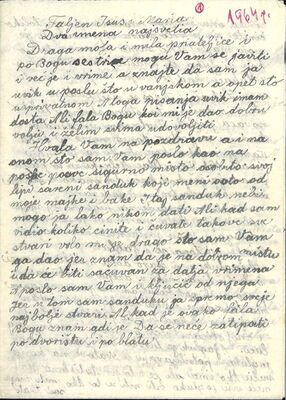 ① 1964 g.
Faljen Isus i Maria
Dva imena najsvetia
Draga moja i mila prijateljice i
po Bogu sestro mogu Vam se javiti
i već je i vrime a znajte da sam ja
uvik u poslu što u vanjskom a opet što
u privatnom Mloga pisanja uvik imam
dosta Ali fala Bogu koi mi je dao dobru
volju i želim svima udovoljiti
Hvala Vam na pozdravu a i na
onom što sam Vam poslo kao na
sigurno misto osobito svoj
lipi šareni sanduk koje meni osto od
moje majke i bake I taj sanduk neči
mogo ja lako nikom dati Ali kad sam
vidio koliko cinite i čuvate takove
stvari vrlo mi je drago što sam Vam
ga dao jer znam da je na dobrom mistu
i da će biti sačuvan za dalja vrimena
A poslo sam Vam i ključić od njega
Jer u tom sam sanduku ja spremo svoje
najbolje stvari Al kad je ovako fala
Bogu znam gdi je Da se neće zatepati
po dvorištu i po blatu